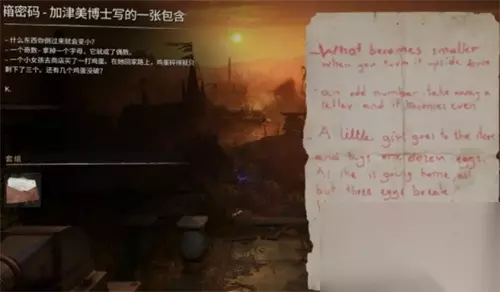 箱密码 - 加津美博士写的一张包含
- 什么东西你倒过来就会变小?
- 一个奇数，拿掉一个字母，它就成了偶数。
- 一个小女孩去商店买了一打鸡蛋，在她回家路上，鸡蛋碎得就只
剩下了三个，还有几个鸡蛋没破?
K.
套组
What becomes smaller
when you turn it upside down
an odd number take away a
letter and it becomes even
A little girl goes to the store
and buys one dozen eggs.
As she is going home, all
but three eggs break